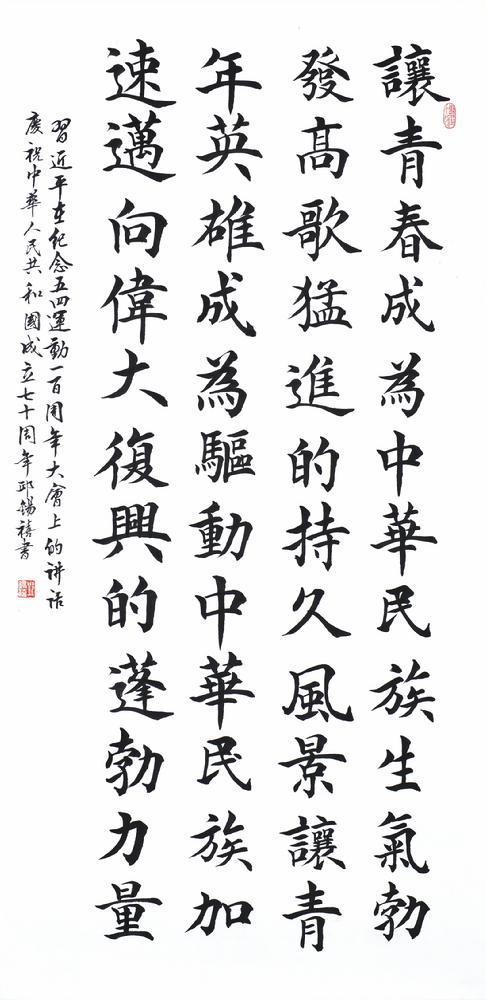 讓青春成為中華民族生氣勃
發高歌猛進的持久風景讓青
年英雄成為驅動中華民族加
速邁向偉大復興的蓬勃力量
習近平在纪念五四運動一百周年大會上的讲话
慶祝中華人民共和國成立七十周年邱錫禧書